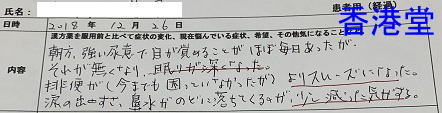 氏名: 患者用(経過)
香港堂
日時 2018年12月26日
漢方薬を服用前と比べて症状の変化、現在悩んでいる症状、希望、その他気になること
内容
朝方、強い尿意で目が覚めることがほぼ毎日あったが、
それが無くなり、眠りが深くなった。
排便が(今までも困っていなかったが)よりスムーズになった。
涙の出やすさ、鼻水がのどに落ちてくるのが、少し減った気がする。